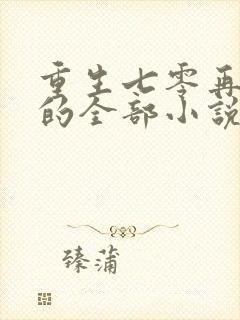 重生七零再
的全部小説
臻蒲